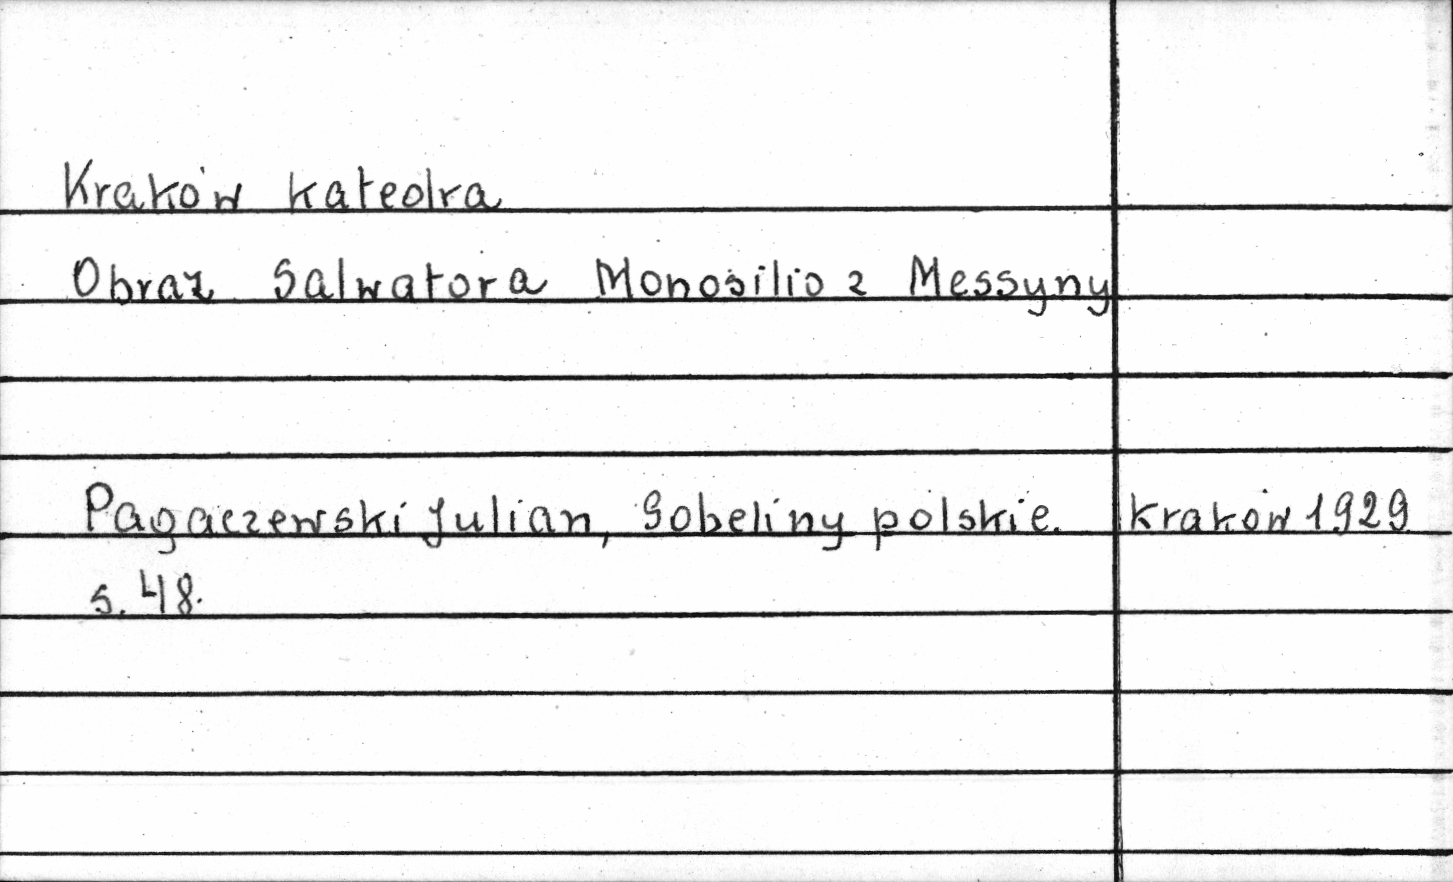 Kraków katedra
Obraz Salwatora Monosilio z Messyny
Pagaczewski Julian, Gobeliny polskie. Kraków 1929
s. 48.